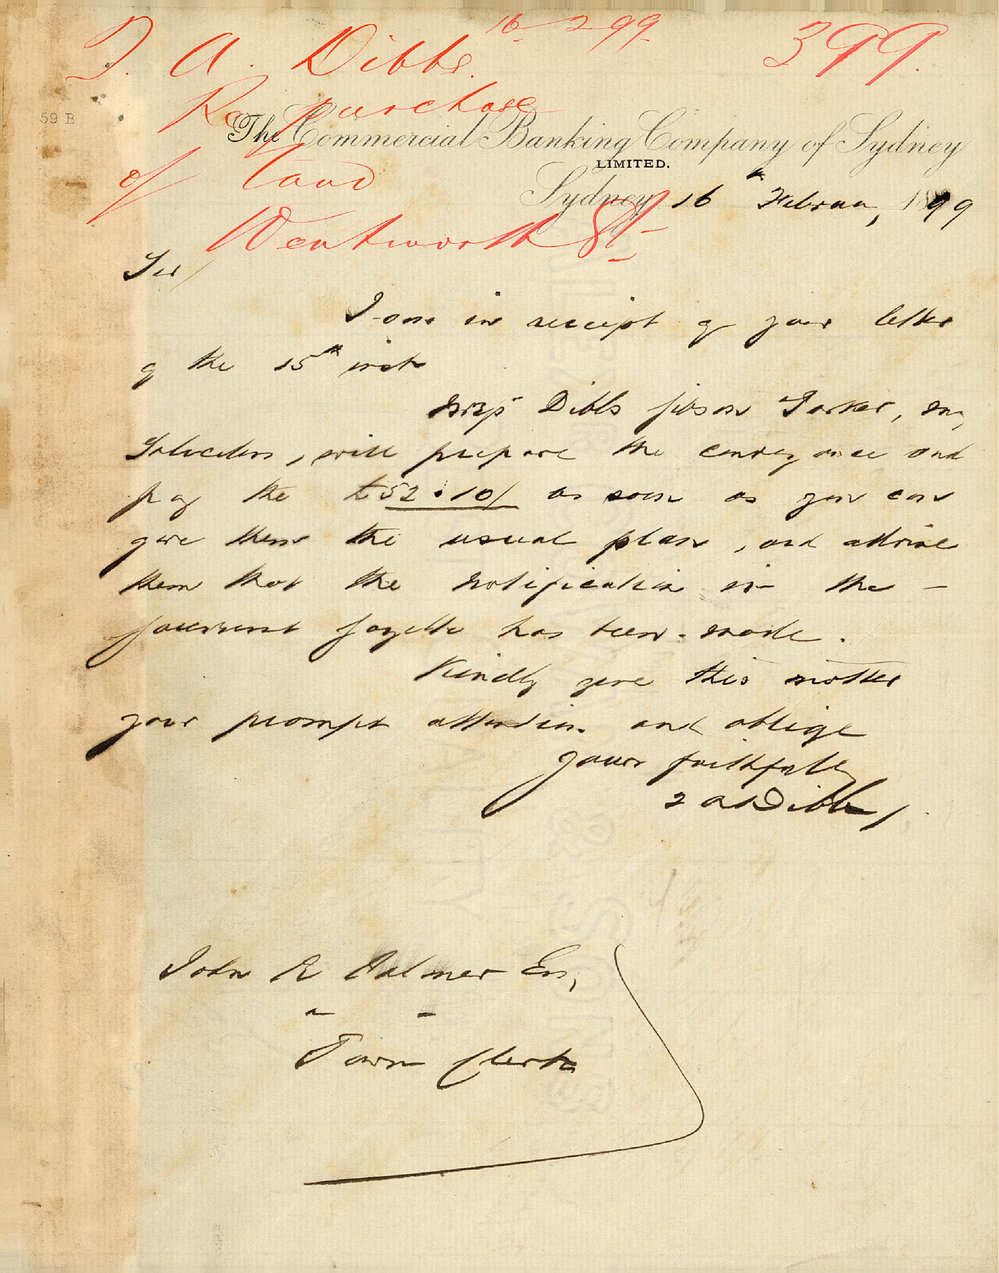 T. A. Dibbs. 16-2-99. 399.
Re purchase
of land
Wentworth St
59 B
The Commercial Banking Company of Sydney
LIMITED.
Sydney, 16 February, 1899
Sir
I am in receipt of your letter
of the 15th inst
Messrs Dibbs Gibson Parker, my
Solicitors, will prepare the conveyance and
pay the £52.10/ as soon as you can
give them the usual plan, and advise
them that the notification in the -
Government Gazette has been made.
Kindly give this matter
your prompt attention and oblige
Yours faithfully
T A Dibbs
John R Palmer Esq,
Town Clerk